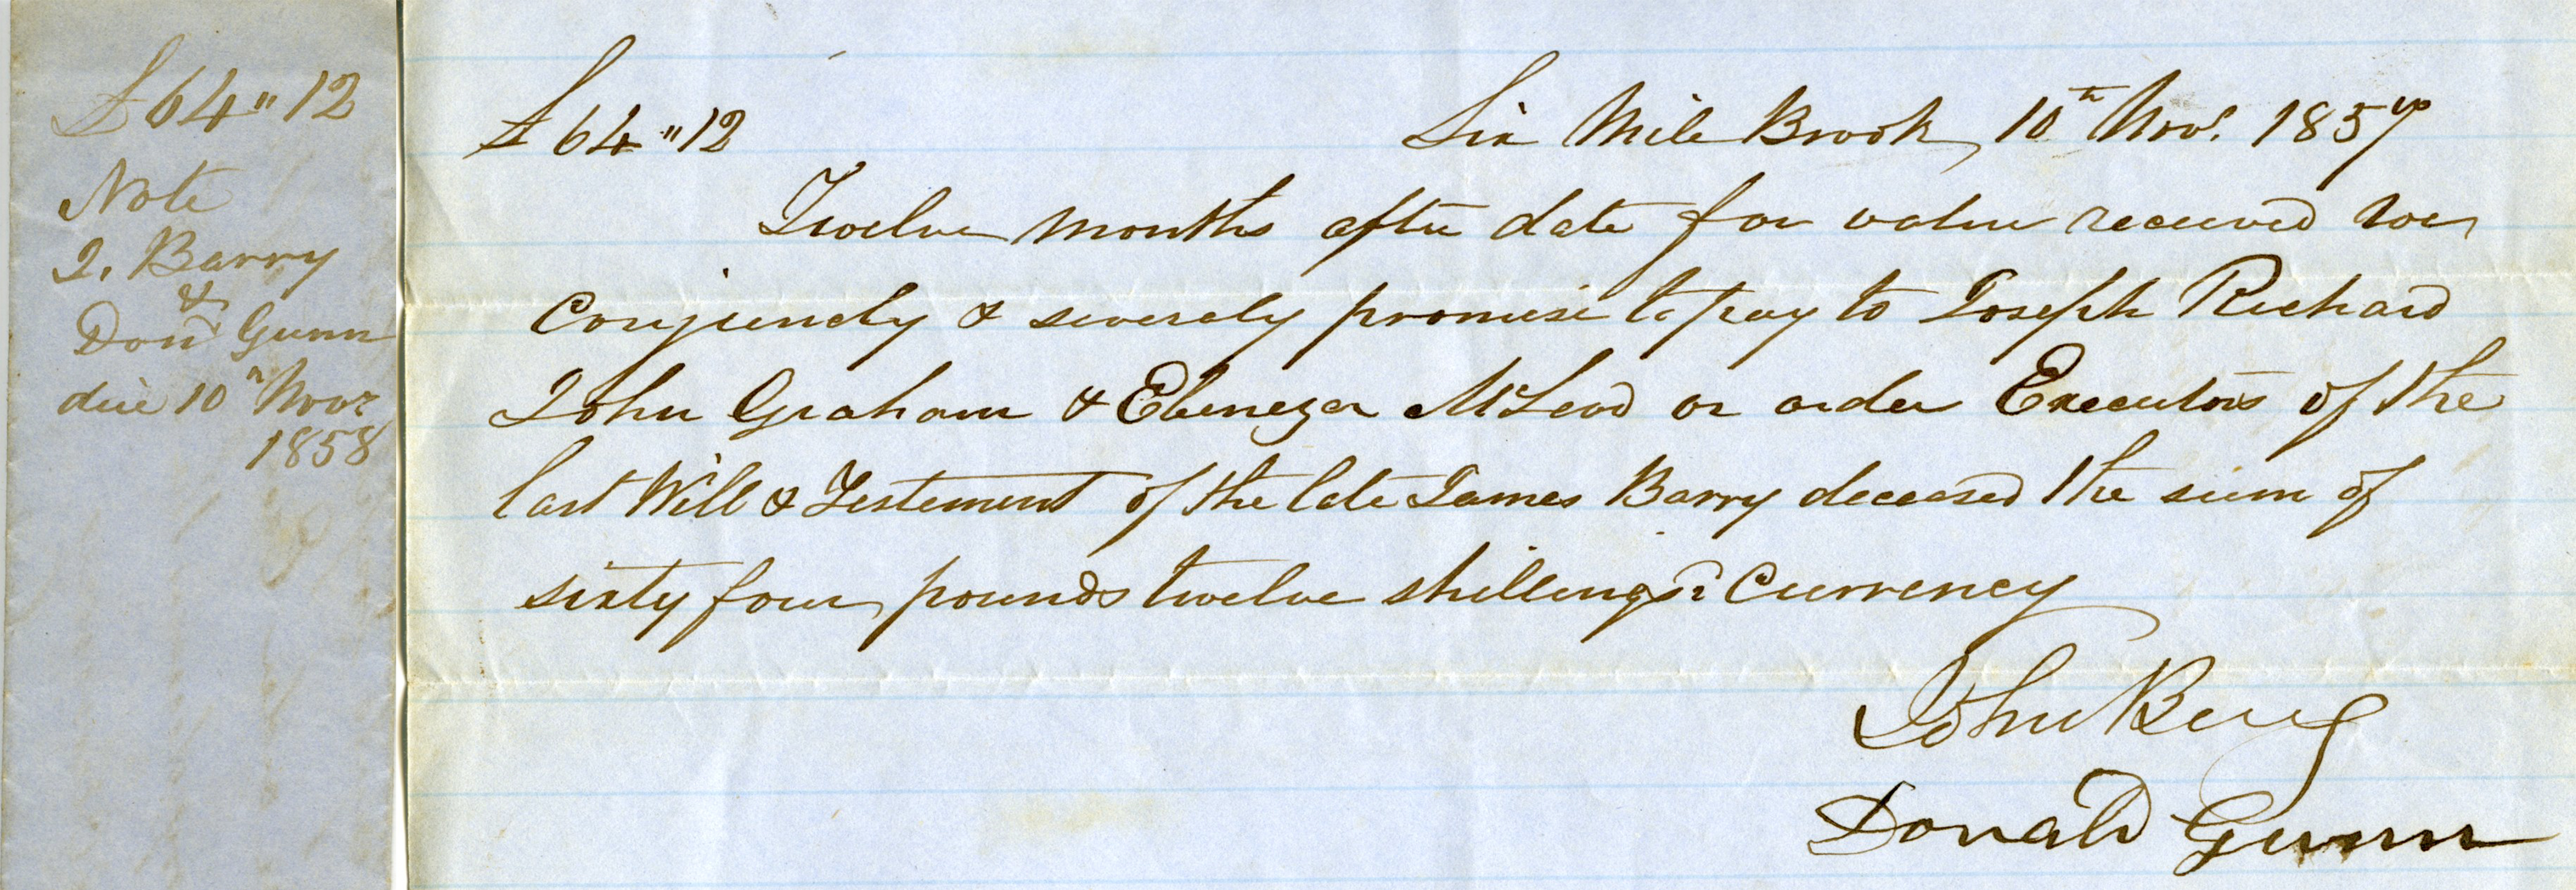 £64 " 12
Note
J. Barry
&
Don Gunn
due 10th Novr
1858
£64 " 12 Six Mile Brook, 10th Novr. 1857
Twelve months after date for value received we
Conjuncly & severaly promise to pay to Joseph Richard
John Graham & Ebenezer McLeod or order Executors of the
last Will & Testement of the late James Barry deceased the sum of
sixty four pounds twelve shillings Currency
John
Donald Gunn